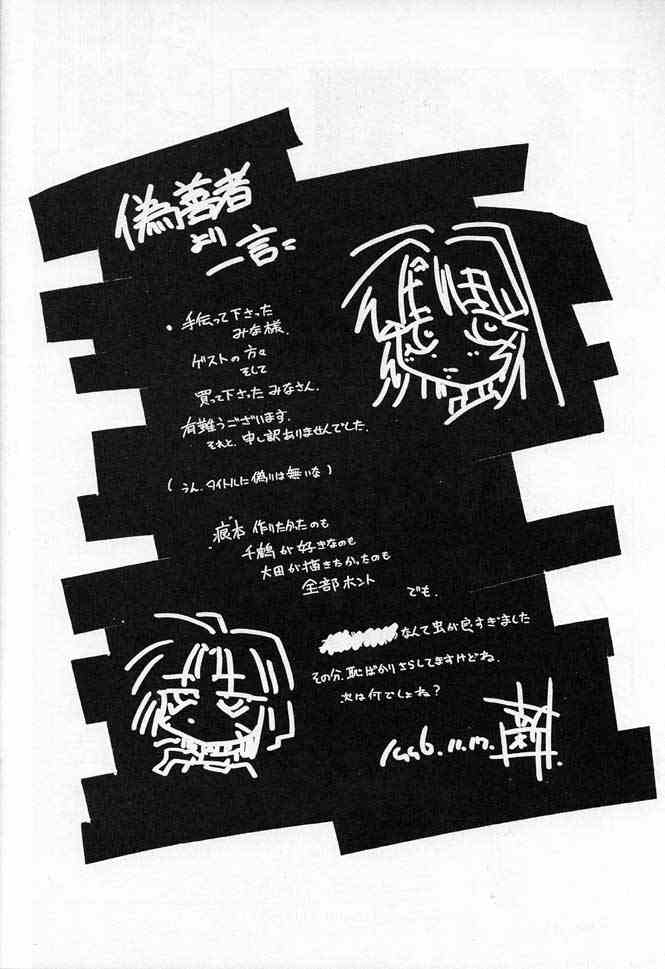 偽善者
より
一言
・手伝って下さった
みな様、
ゲストの方々
そして
買って下さった みなさん、
有難うございます。
それと、申し訳ありませんでした。
(うん、タイトルに偽りは無いな)
痕本 作りたかったのも
千鶴が好きなのも
太田が描きたかったのも
全部ホント
でも、
なんて虫が良すぎました
その分、恥ばかりさらしてますけどね。
次は何でしょね?
1996.11.17.